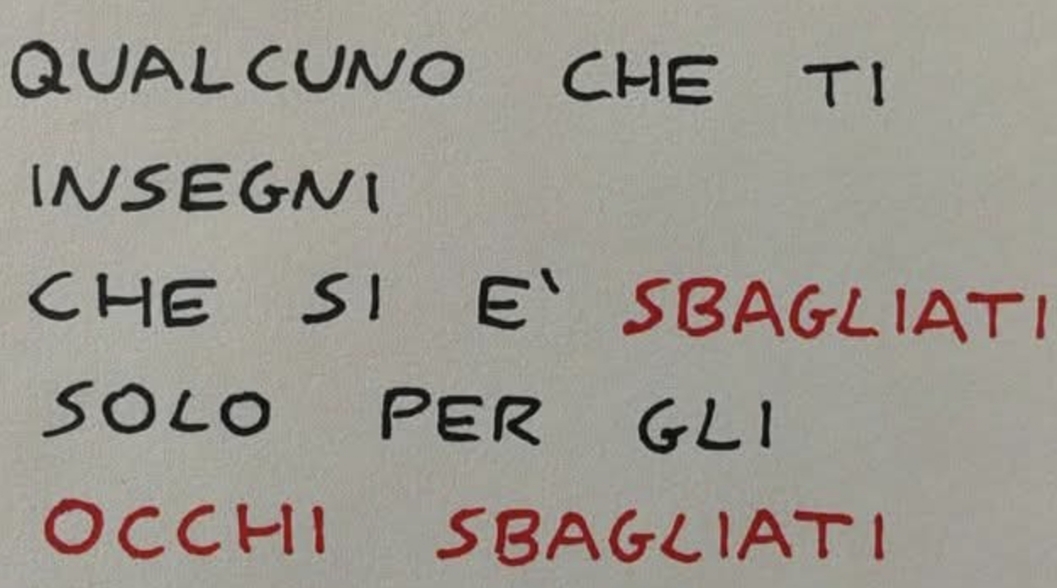 QUALCUNO CHE TI
INSEGNI
CHE SI E' SBAGLIATI
SOLO PER GLI
OCCHI SBAGLIATI